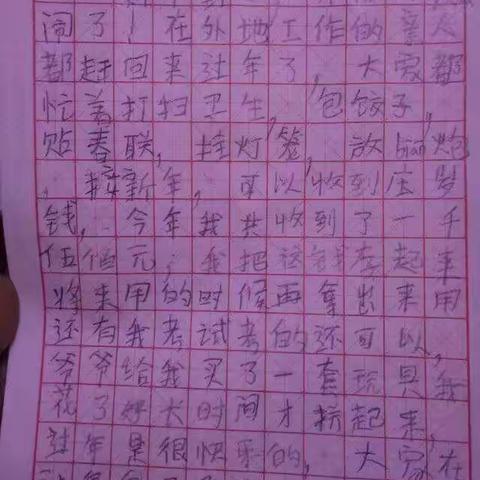 闹了！在外地工作的亲人
都赶回来过年了，大家都
忙着打扫卫生，包饺子，
贴春联，挂灯笼，放bian炮
，接新年，可以收到压岁
钱，今年我共收到了一千
伍佰元，我把这钱存起来
将来用的时候再拿出来用
还有我考试考的还可以，
爷爷给我买了一套玩具，我
花了好长时间才拼起来，
过年是很快乐的，大家在